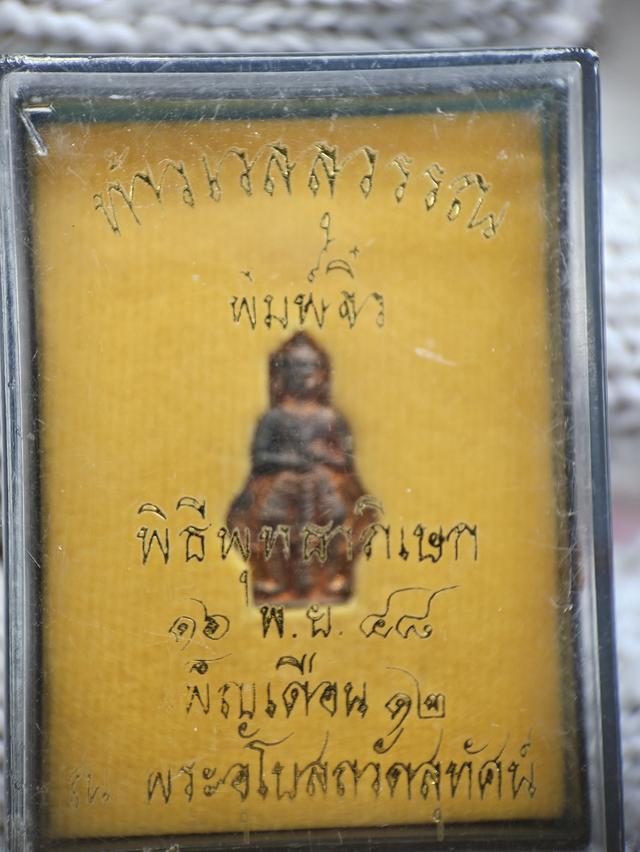 ท้าวเวสสุวรรณ
พิมพ์จิ๋ว
พิธีพุทธาภิเษก
๑๖ พ.ย. ๔๘
เพ็ญเดือน ๑๒
ณ พระอุโบสถวัดสุทัศน์